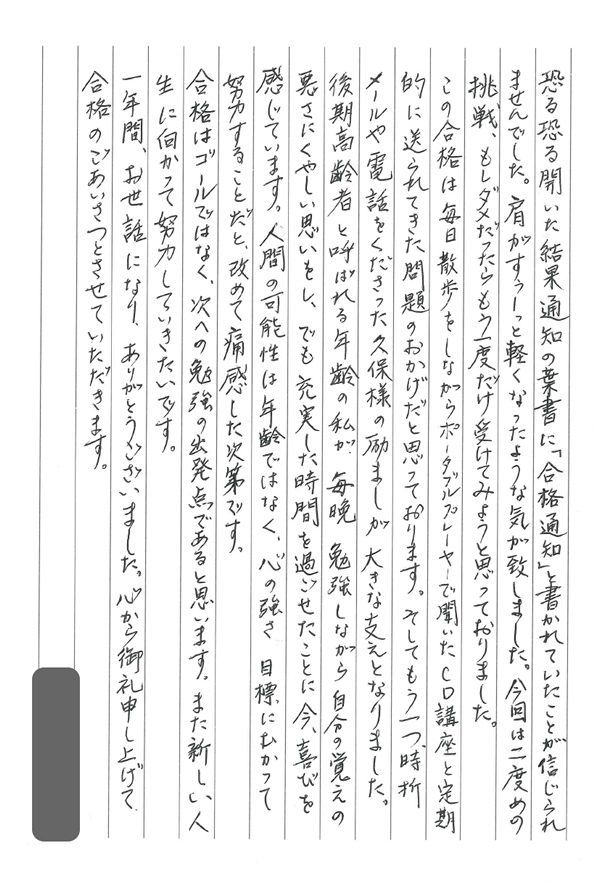 恐る恐る開いた結果通知の葉書に「合格通知」と書かれていたことが信じられ
ませんでした。肩がすぅーっと軽くなったような気が致しました。今回は二度めの
挑戦、もしダメだったらもう一度だけ受けてみようと思っておりました。
この合格は毎日散歩をしながらポータブルプレーヤーで聞いたCD講座と定期
的に送られてきた問題のおかげだと思っております。そしてもう一つ、時折
メールや電話をくださった久保様の励ましが大きな支えとなりました。
後期高齢者と呼ばれる年齢の私が、毎晩勉強しながら自分の覚えの
悪さにくやしい思いもし、でも充実した時間を過ごせたことに今、喜びを
感じています。人間の可能性は年齢ではなく、心の強さ 目標にむかって
努力することだと、改めて痛感した次第です。
合格はゴールではなく、次への勉強の出発点であると思います。また新しい人
生に向かって努力していきたいです。
一年間、お世話になり、ありがとうございました。心から御礼申し上げて、
合格のごあいさつとさせていただきます。